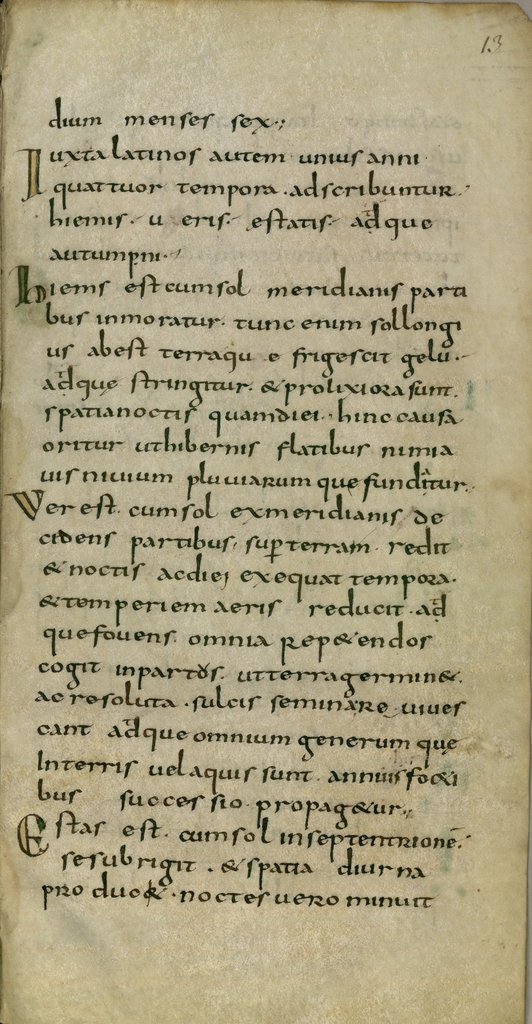 13
dium menses sex.,
Iuxta latinos autem unius anni
quattuor tempora . adscribuntur.
hiemis . u eris . estatis . adque
autumpni .
hiems est cum sol meridianis parti
bus inmoratur . tunc enim sol longi
us abest terraqu e frigescit gelu .
adque stringitur . & prolixiora sunt .
spatia noctis quam diei . hinc causa
oritur ut hibernis flatibus nimia
uis niuium pluuiarum que funditur .
Ver est . cum sol ex meridianis de
cidens partibus . sup terram . redit
& noctis ac diei exequat tempora .
& temperiem aeris reducit . ad
que fouens omnia rep&endos
cogit in partus . ut terra germin& .
ac resoluta . sulcis seminare uiues
cant adque omnium generum que
In terris uel aquis sunt . annuis fo&i
bus succes sio propag&ur .,
Estas est . cum sol in septentrionē .
se subrigit . & spatia diurna
produc& . noctes uero minuit